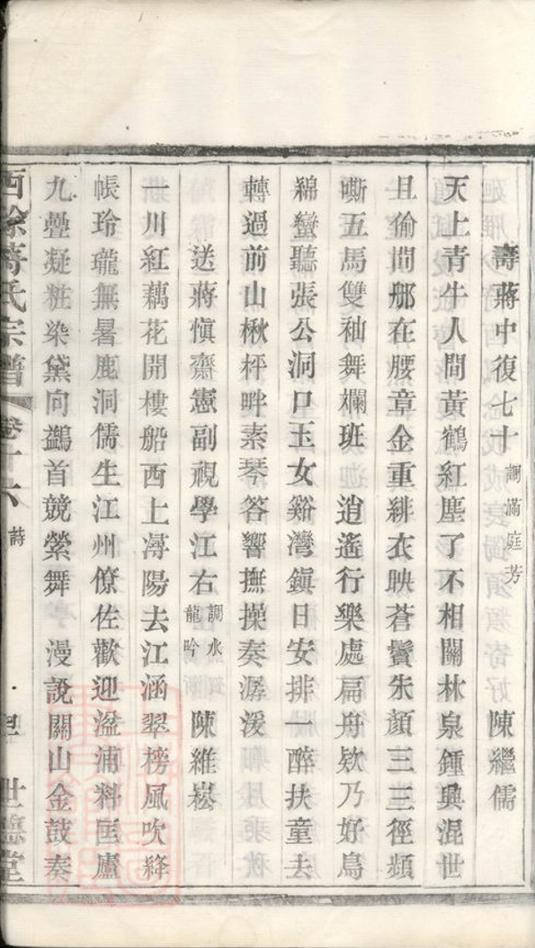 壽蔣中復七十 調滿庭芳 陳繼儒
天上青牛人間黃鶴紅塵了不相關林泉鍾與混世
且偷閒那在腰章金重緋衣映蒼鬢朱顏三三徑頻
嘶五馬雙袖舞斕班 逍遙行樂處扁舟欸乃好鳥
綿蠻聽張公洞口玉女谿灣鎭日安排一醉扶童去
轉過前山楸枰畔素琴答響撫操奏潺湲
送蔣愼齋憲副視學江右 調水龍吟 陳維崧
一川紅藕花開樓船西上潯陽去江涵翠榜風吹絳
帳玲瓏無暑鹿洞儒生江州僚佐歡迎湓浦料匡廬
九疊凝粧染黛向鷁首競縈舞 漫說關山金鼓奏
西徐蔣氏宗譜 卷十六 詩 世德堂